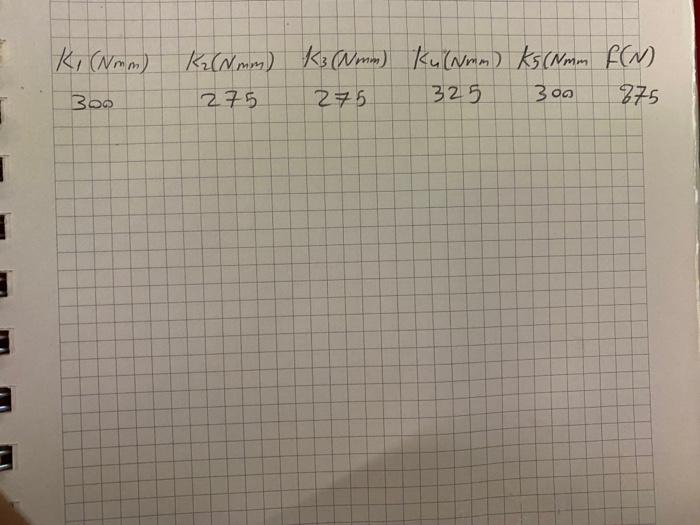 K₁ (Nmm) K₂(Nmm) K₃(Nmm) K₄(Nmm) K₅(Nmm F(N)
300 275 275 325 300 875